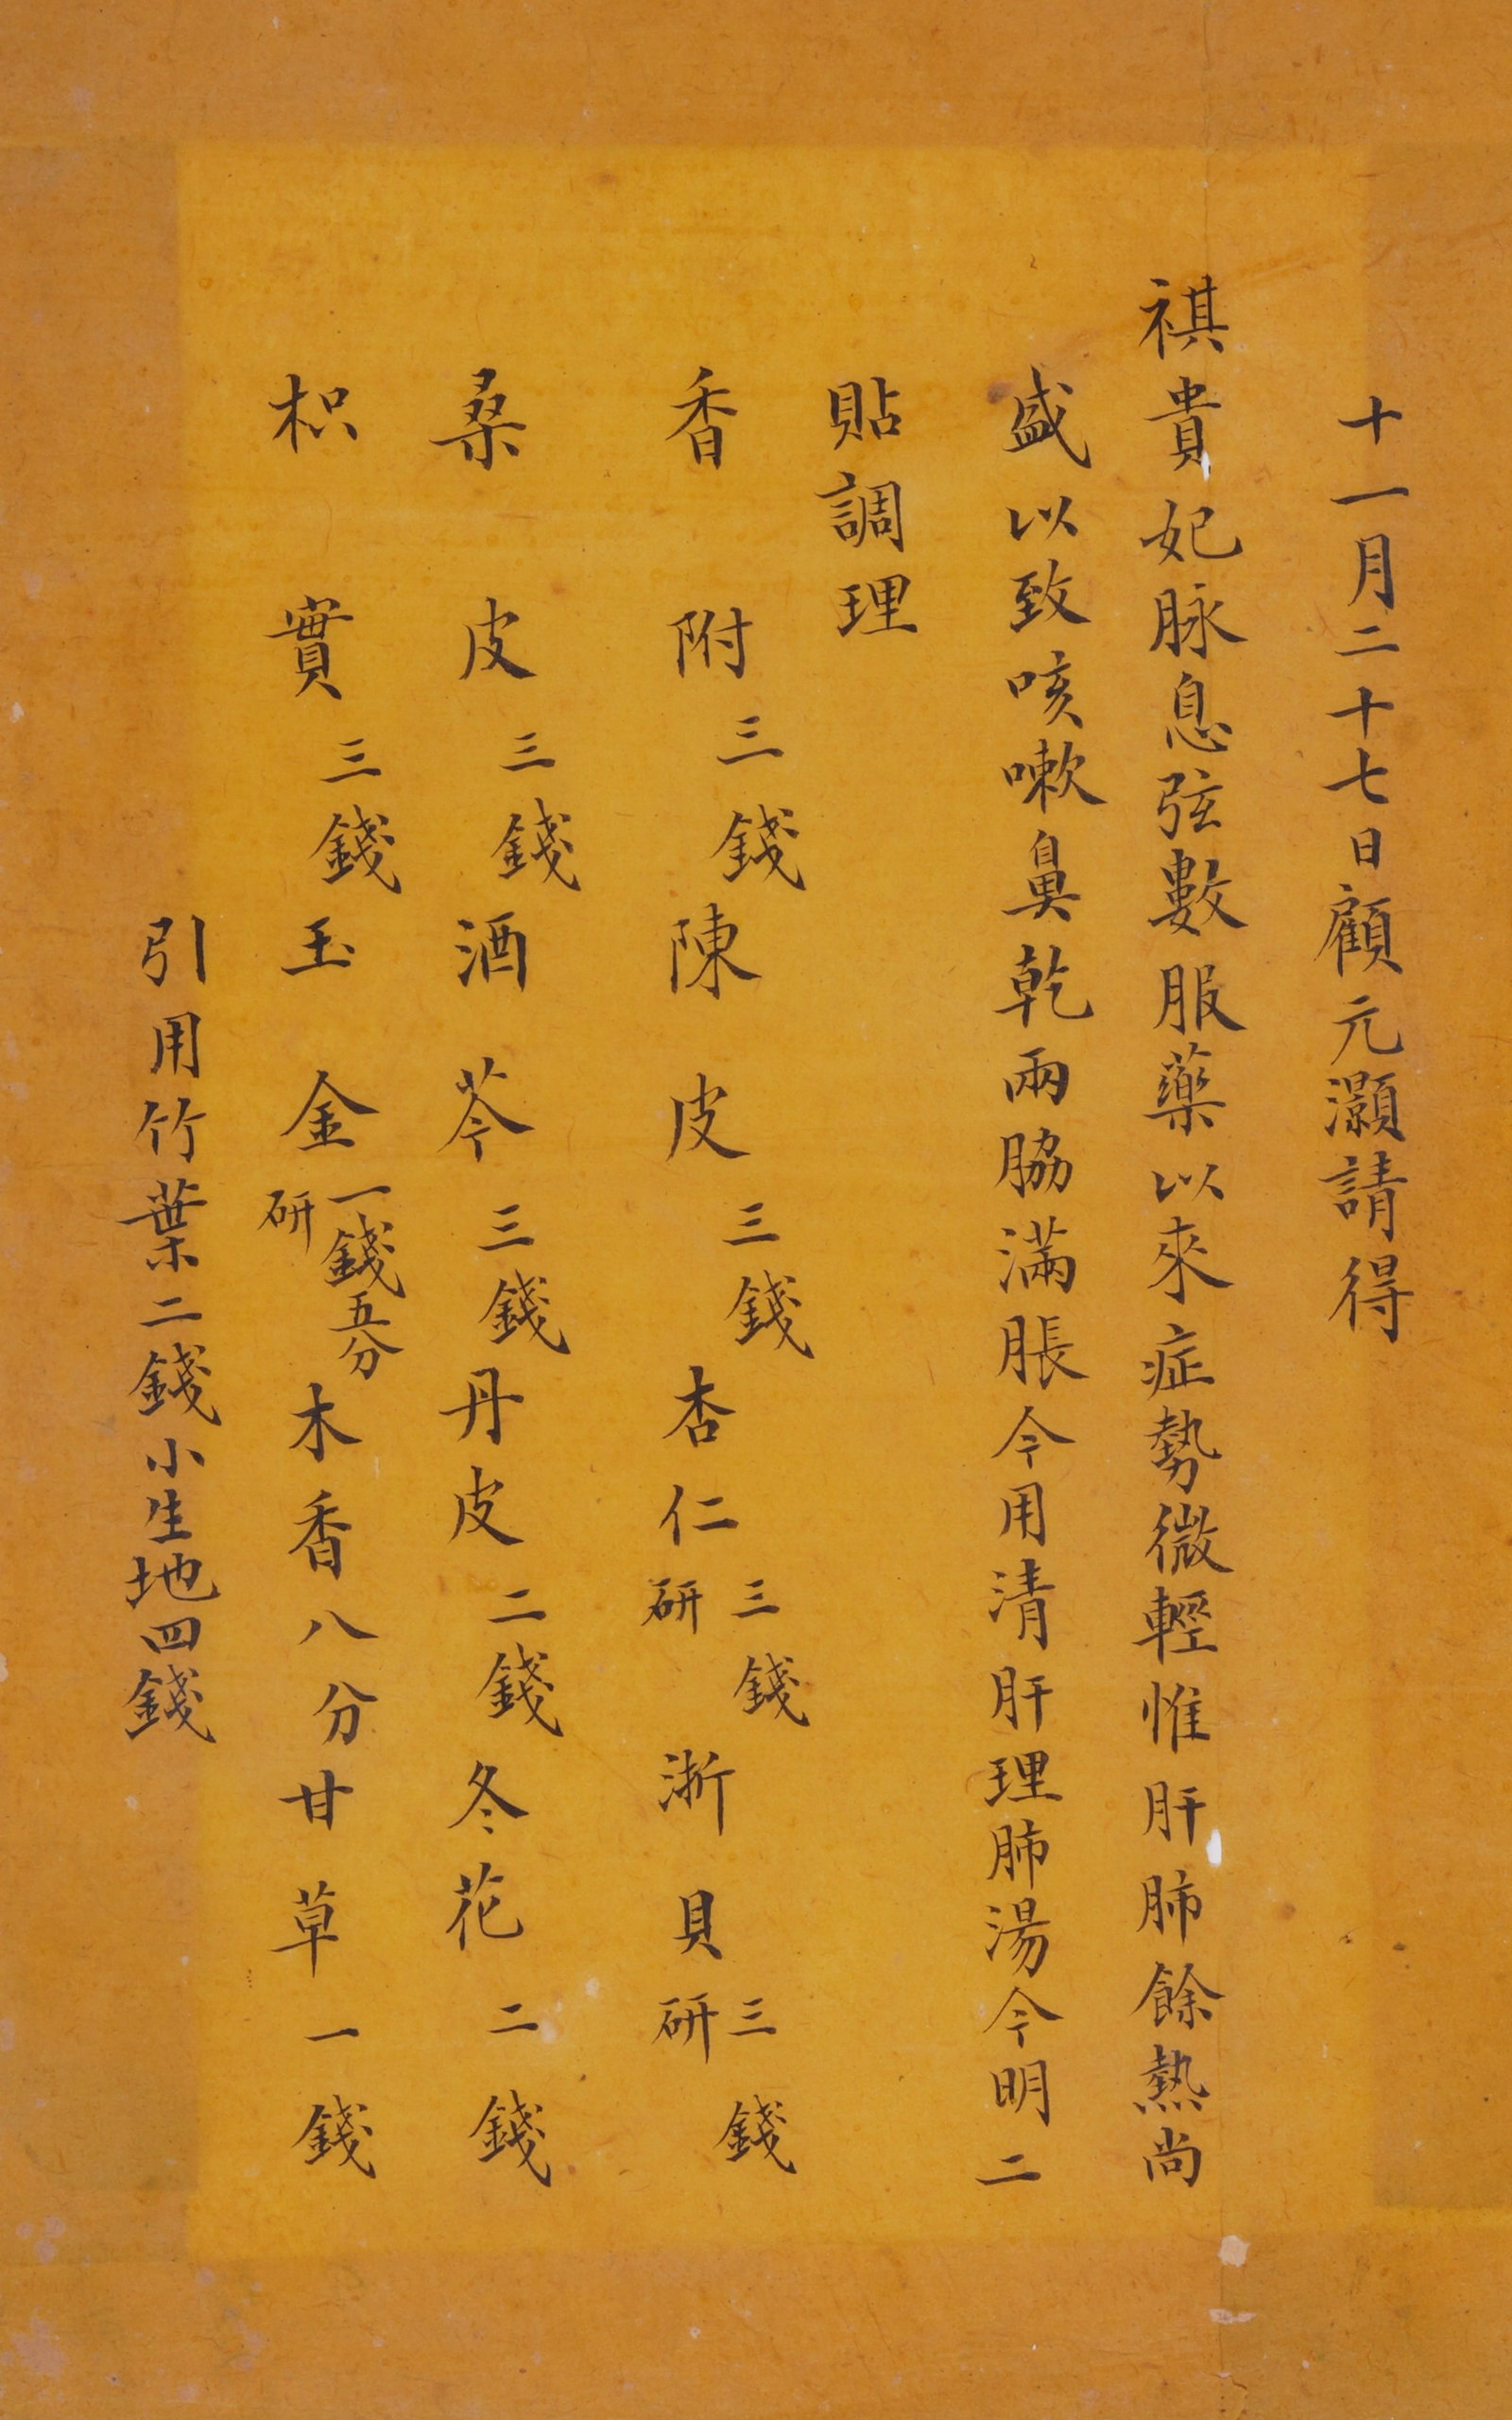 十一月二十七日顧元灝請得
祺貴妃脉息弦數服藥以來症勢微輕惟肝肺餘熱尚
盛以致咳嗽鼻乾兩脇滿脹今用清肝理肺湯今明二
貼調理
香附三錢陳皮三錢杏仁三錢研浙貝三錢研
桑皮三錢酒芩三錢丹皮二錢冬花二錢
枳實三錢玉金一錢五分研木香八分甘草一錢
引用竹葉二錢小生地四錢